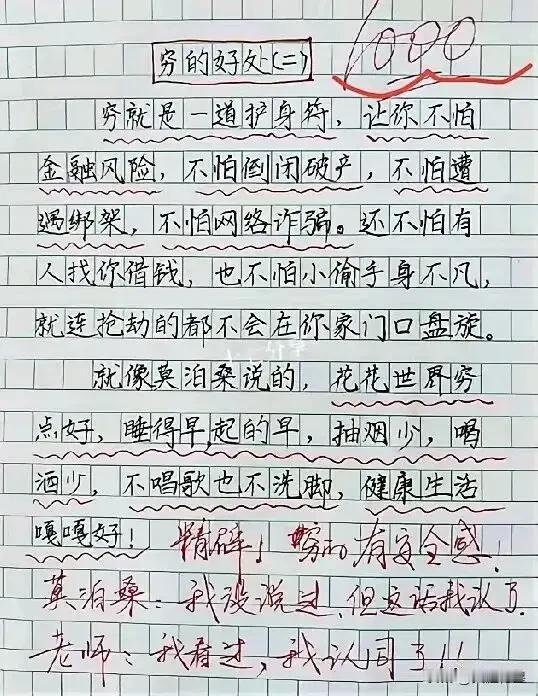 穷的好处(二)
1000
穷就是一道护身符，让你不怕
金融风险，不怕倒闭破产，不怕遭
遇绑架，不怕网络诈骗。还不怕有
人找你借钱，也不怕小偷手身不凡，
就连抢劫的都不会在你家门口盘旋。
就像莫泊桑说的，花花世界穷
点好，睡得早，起的早，抽烟少，喝
酒少，不唱歌也不洗脚，健康生活
嘎嘎好！ 精辟！穷的有安全感！
莫泊桑：我没说过，但这话我认了.
老师：我看过，我认同了!!